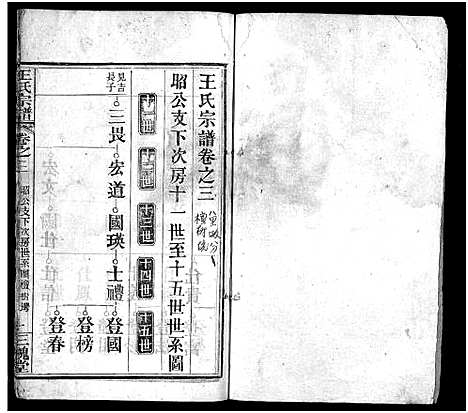 王氏宗譜卷之三
昭公支下次房十一世至十五世世系圖
十一世
十二世
十三世
十四世
十五世
見吉長子
三畏
宏道
國瑛
士禮
登國
登榜
登春
王氏宗譜
卷之三
昭公支下次房世系圖
三槐堂